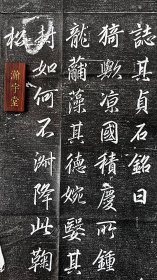 誌其貞石銘曰
猗歟凉國積慶所鍾
龍黼藻其德婉嫕其
封如何不淑降此鞠
松
瀚宇堂